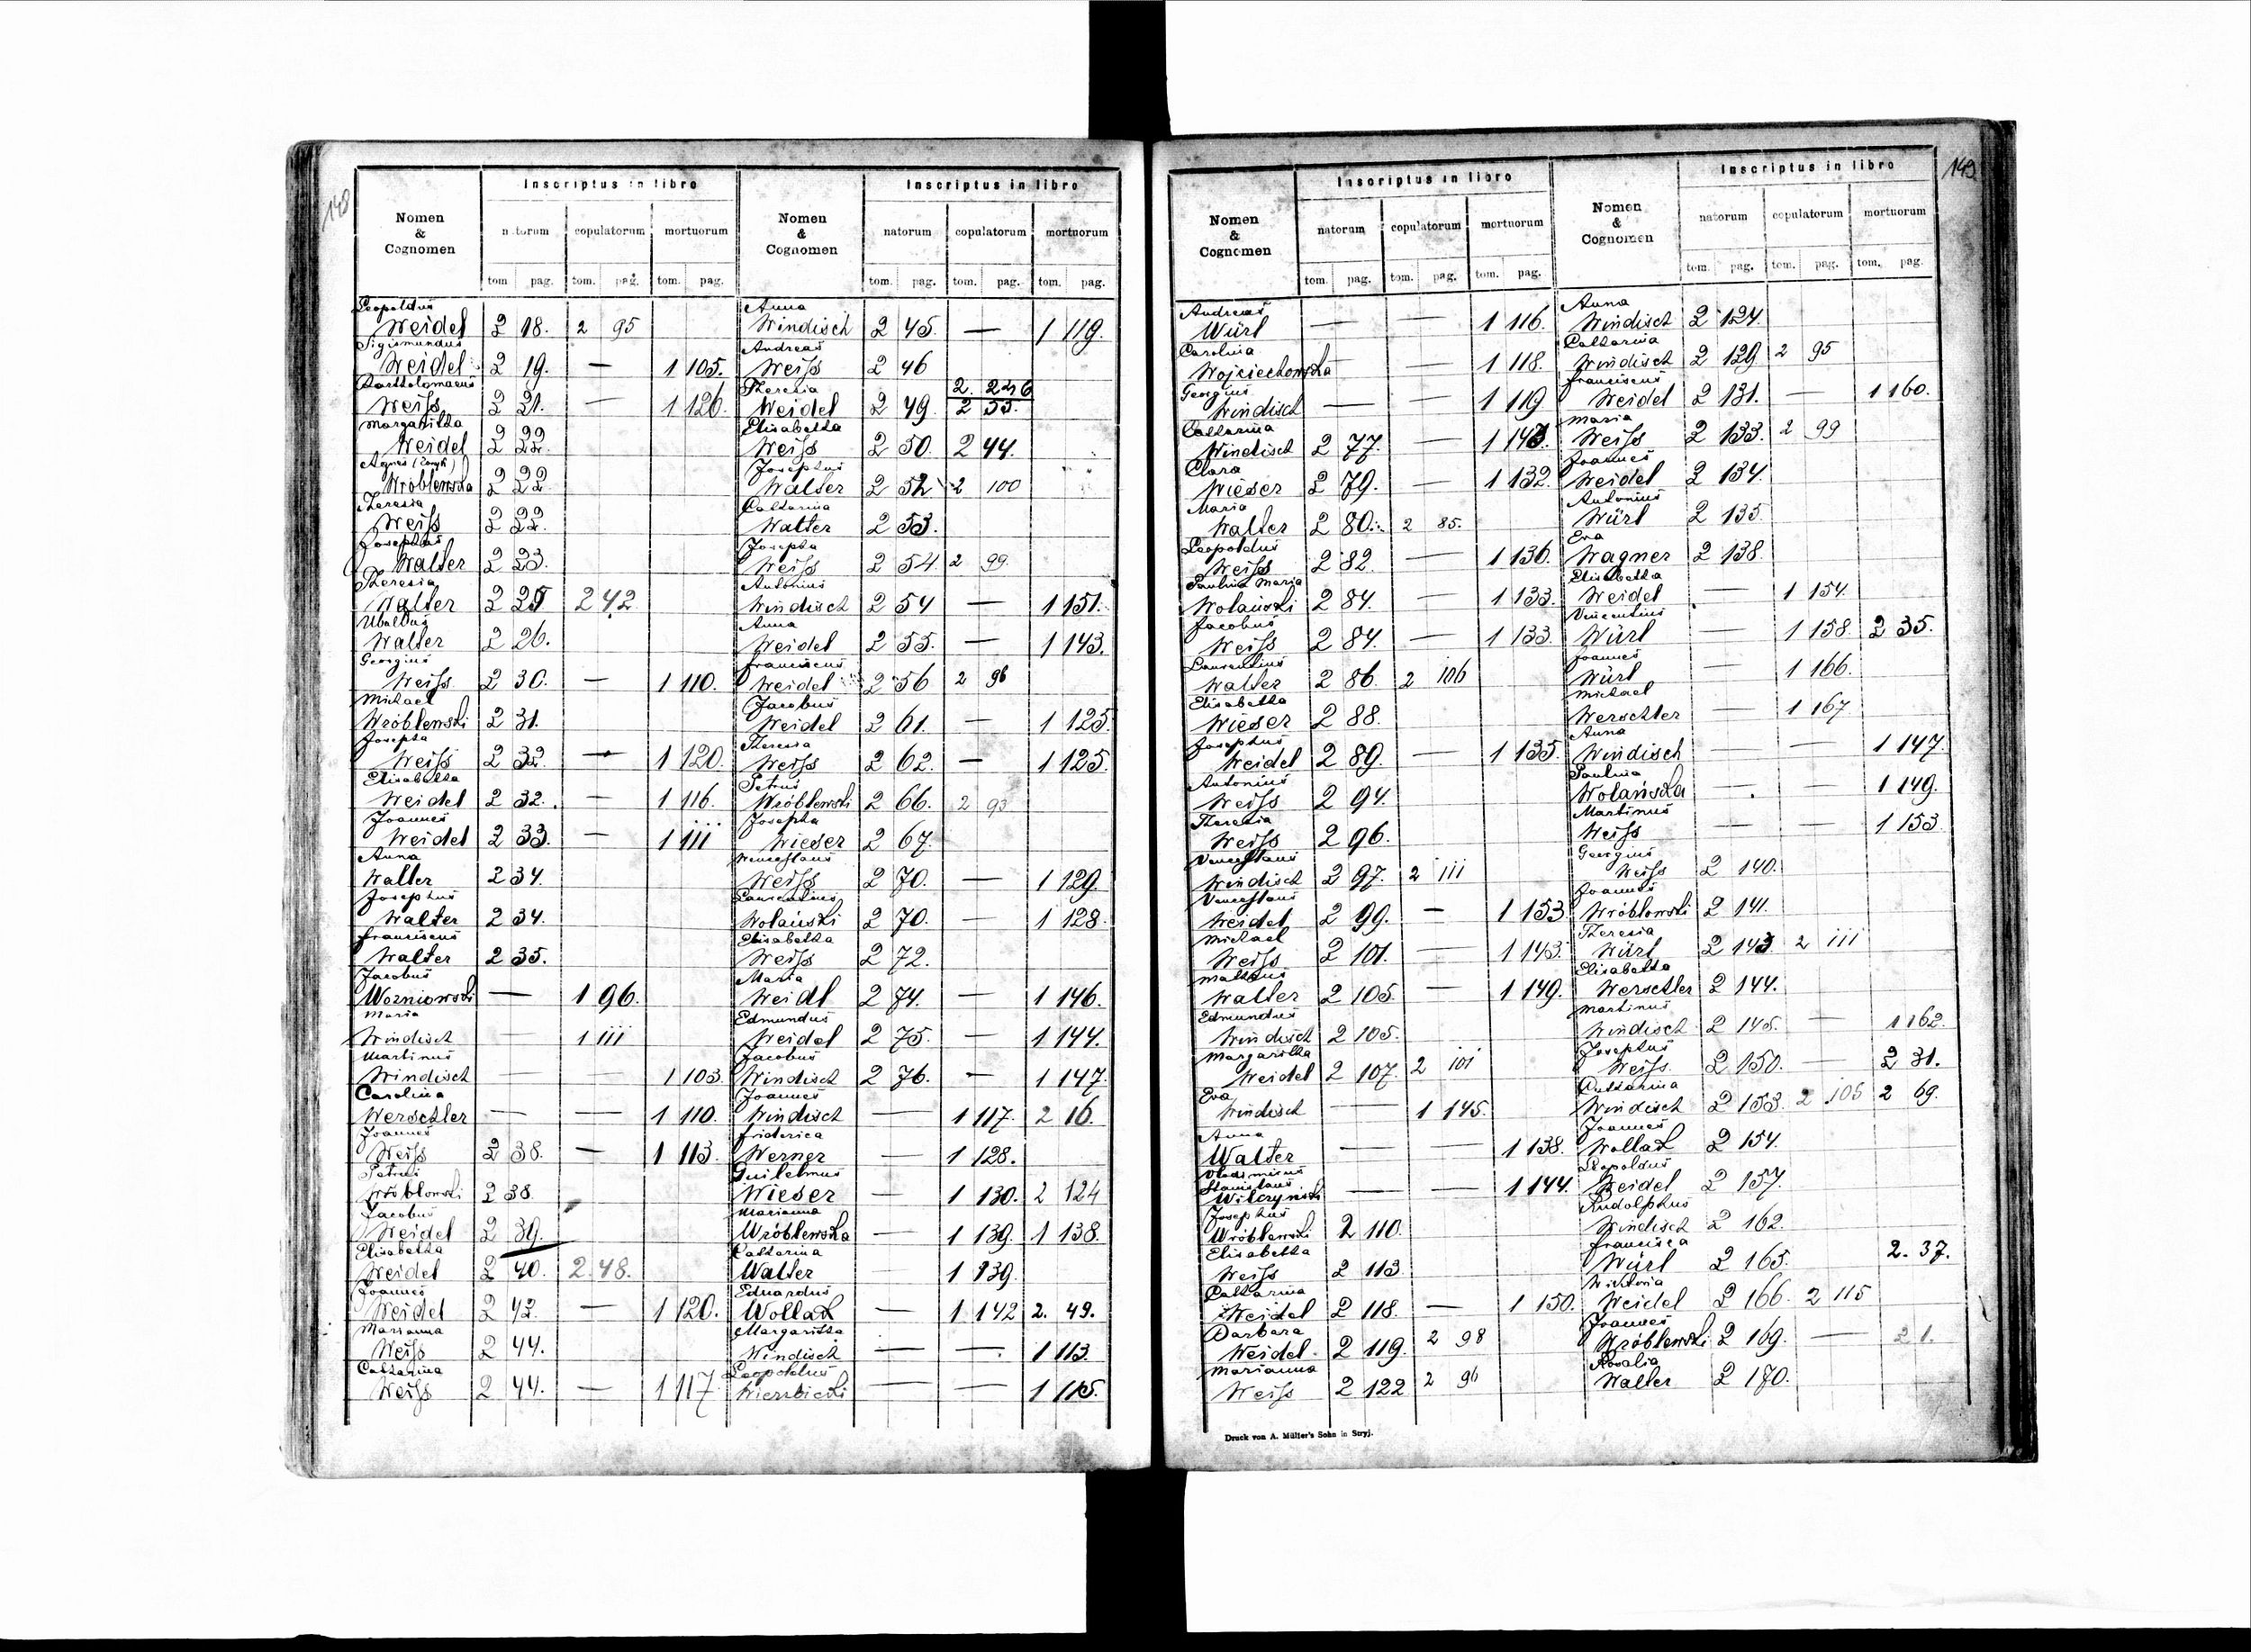 148
Inscriptus in libro
Nomen & Cognomen natorum copulatorum mortuorum
tom pag. tom. pag. tom. pag.
Leopoldus
Weidel 2 18. 2 95
Sigismundus
Weidel 2 19. — 1 105.
Bartholomaeus
Weiss 2 21. — 1 126.
Margaritha
Weidel 2 22.
Agnes
Wróblewska 2 22.
Theresia
Weiss 2 22.
Josephus
Walter 2 23.
Theresia
Walter 2 25 2 42
Ubaldus
Walter 2 26.
Georgius
Weiss 2 30. — 1 110.
Michael
Wróblewski 2 31.
Josepha
Weiss 2 32. — 1 120.
Elisabetha
Weidel 2 32. — 1 116.
Joannes
Weidel 2 33. — 1 111
Anna
Walter 2 34.
Josephus
Walter 2 34.
Franciscus
Walter 2 35.
Jacobus
Wozniowski — 1 96.
Maria
Windisch — 1 111
Martinus
Windisch — — 1 103.
Carolina
Werschler — — 1 110.
Joannes
Weiss 2 38. — 1 113.
Petrus
Wróblowski 2 38.
Jacobus
Weidel 2 39.
Elisabetha
Weidel 2 40. 2. 48.
Joannes
Weidel 2 42. — 1 120.
Marianna
Weiss 2 44.
Catharina
Weiss 2 44. — 1 117
Inscriptus in libro
Nomen & Cognomen natorum copulatorum mortuorum
tom. pag. tom. pag. tom. pag.
Anna
Windisch 2 45. — 1 119.
Andreas
Weiss 2 46
Theresia 2. 246
Weidel 2 49. 2 53.
Elisabetha
Weiss 2 50. 2 44.
Josephus
Walter 2 52 2 100
Catharina
Walter 2 53.
Josepha
Weiss 2 54 2 99.
Antonius
Windisch 2 54 — 1 151.
Anna
Weidel 2 55. — 1 143.
Franciscus
Weidel 2 56 2 96
Jacobus
Weidel 2 61. — 1 125
Theresia
Weiss 2 62. — 1 125.
Petrus
Wróblewski 2 66. 2 93
Josepha
Wieser 2 67.
Wenceslaus
Weiss 2 70. — 1 129.
Laurentius
Wolański 2 70. — 1 128.
Elisabetha
Weiss 2 72.
Maria
Weidl 2 74. — 1 146.
Edmundus
Weidel 2 75. — 1 144.
Jacobus
Windisch 2 76. — 1 147.
Joannes
Windisch — 1 117. 2 16.
Friderica
Werner — 1 128.
Guilelmus
Wieser — 1 130. 2 124
Marianna
Wróblewska — 1 139. 1 138.
Catharina
Walter — 1 139.
Eduardus
Wollak — 1 142 2. 49.
Margaritha
Windisch — — 1 113.
Leopoldus
Wierzbicki — — 1 115.
149
Inscriptus in libro
Nomen & Cognomen natorum copulatorum mortuorum
tom. pag. tom. pag. tom. pag.
Andreas
Würl — — 1 116.
Carolina
Wojciechowska — — 1 118.
Georgius
Windisch — — 1 119
Catharina
Windisch 2 77. — 1 143.
Clara
Wieser 2 79. — 1 132.
Maria
Walter 2 80. 2 85.
Leopoldus
Weiss 2 82. — 1 136.
Paulina Maria
Wolański 2 84. — 1 133.
Jacobus
Weiss 2 84. — 1 133.
Laurentius
Walter 2 86. 2 106
Elisabetha
Wieser 2 88.
Josephus
Weidel 2 89. — 1 135.
Antonius
Weiss 2 94.
Theresia
Weiss 2 96.
Venceslaus
Windisch 2 97. 2 111
Venceslaus
Weidel 2 99. — 1 153.
Michael
Weiss 2 101. — 1 143.
Walter 2 105. — 1 149.
Edmundus
Windisch 2 105.
Margaritha
Weidel 2 107. 2 101
Eva
Windisch — 1 145.
Anna
Walter — — 1 138.
Vladimirus
Stanislaus
Wilczynski — — 1 144.
Josephus
Wróblewski 2 110.
Elisabetha
Weiss 2 113.
Catharina
Weidel 2 118. — 1 150.
Barbara
Weidel 2 119. 2 98
Marianna
Weiss 2 122 2 96
Inscriptus in libro
Nomen & Cognomen natorum copulatorum mortuorum
tom. pag. tom. pag. tom. pag.
Anna
Windisch 2 124.
Catharina
Windisch 2 129 2 95
Franciscus
Weidel 2 131. — 1 160.
Maria
Weiss 2 133. 2 99
Joannes
Weidel 2 134.
Antonius
Würl 2 135
Eva
Wagner 2 138.
Elisabetha
Weidel — 1 154.
Vincentius
Würl — 1 158. 2 35.
Joannes
Würl — 1 166.
Michael
Werschler — 1 167.
Anna
Windisch — — 1 147
Paulina
Wolańska — — 1 149.
Martinus
Weiss — — 1 153
Georgius
Weiss 2 140.
Joannes
Wróblowski 2 141.
Theresia
Würl 2 143 2 111
Elisabetha
Werschler 2 144.
Martinus
Windisch 2 145. — 1 162.
Josephus
Weiss 2 150. — 2 31.
Catharina
Windisch 2 153. 2 105 2 69.
Joannes
Wollak 2 154.
Leopoldus
Weidel 2 157.
Rudolphus
Windisch 2 162.
Francisca
Würl 2 165. 2. 37.
Wiktoria
Weidel 2 166. 2 115
Joannes
Wróblewski 2 169. — 2 1.
Rosalia
Walter 2 170.
Druck von A. Müller's Sohn in Stryj.